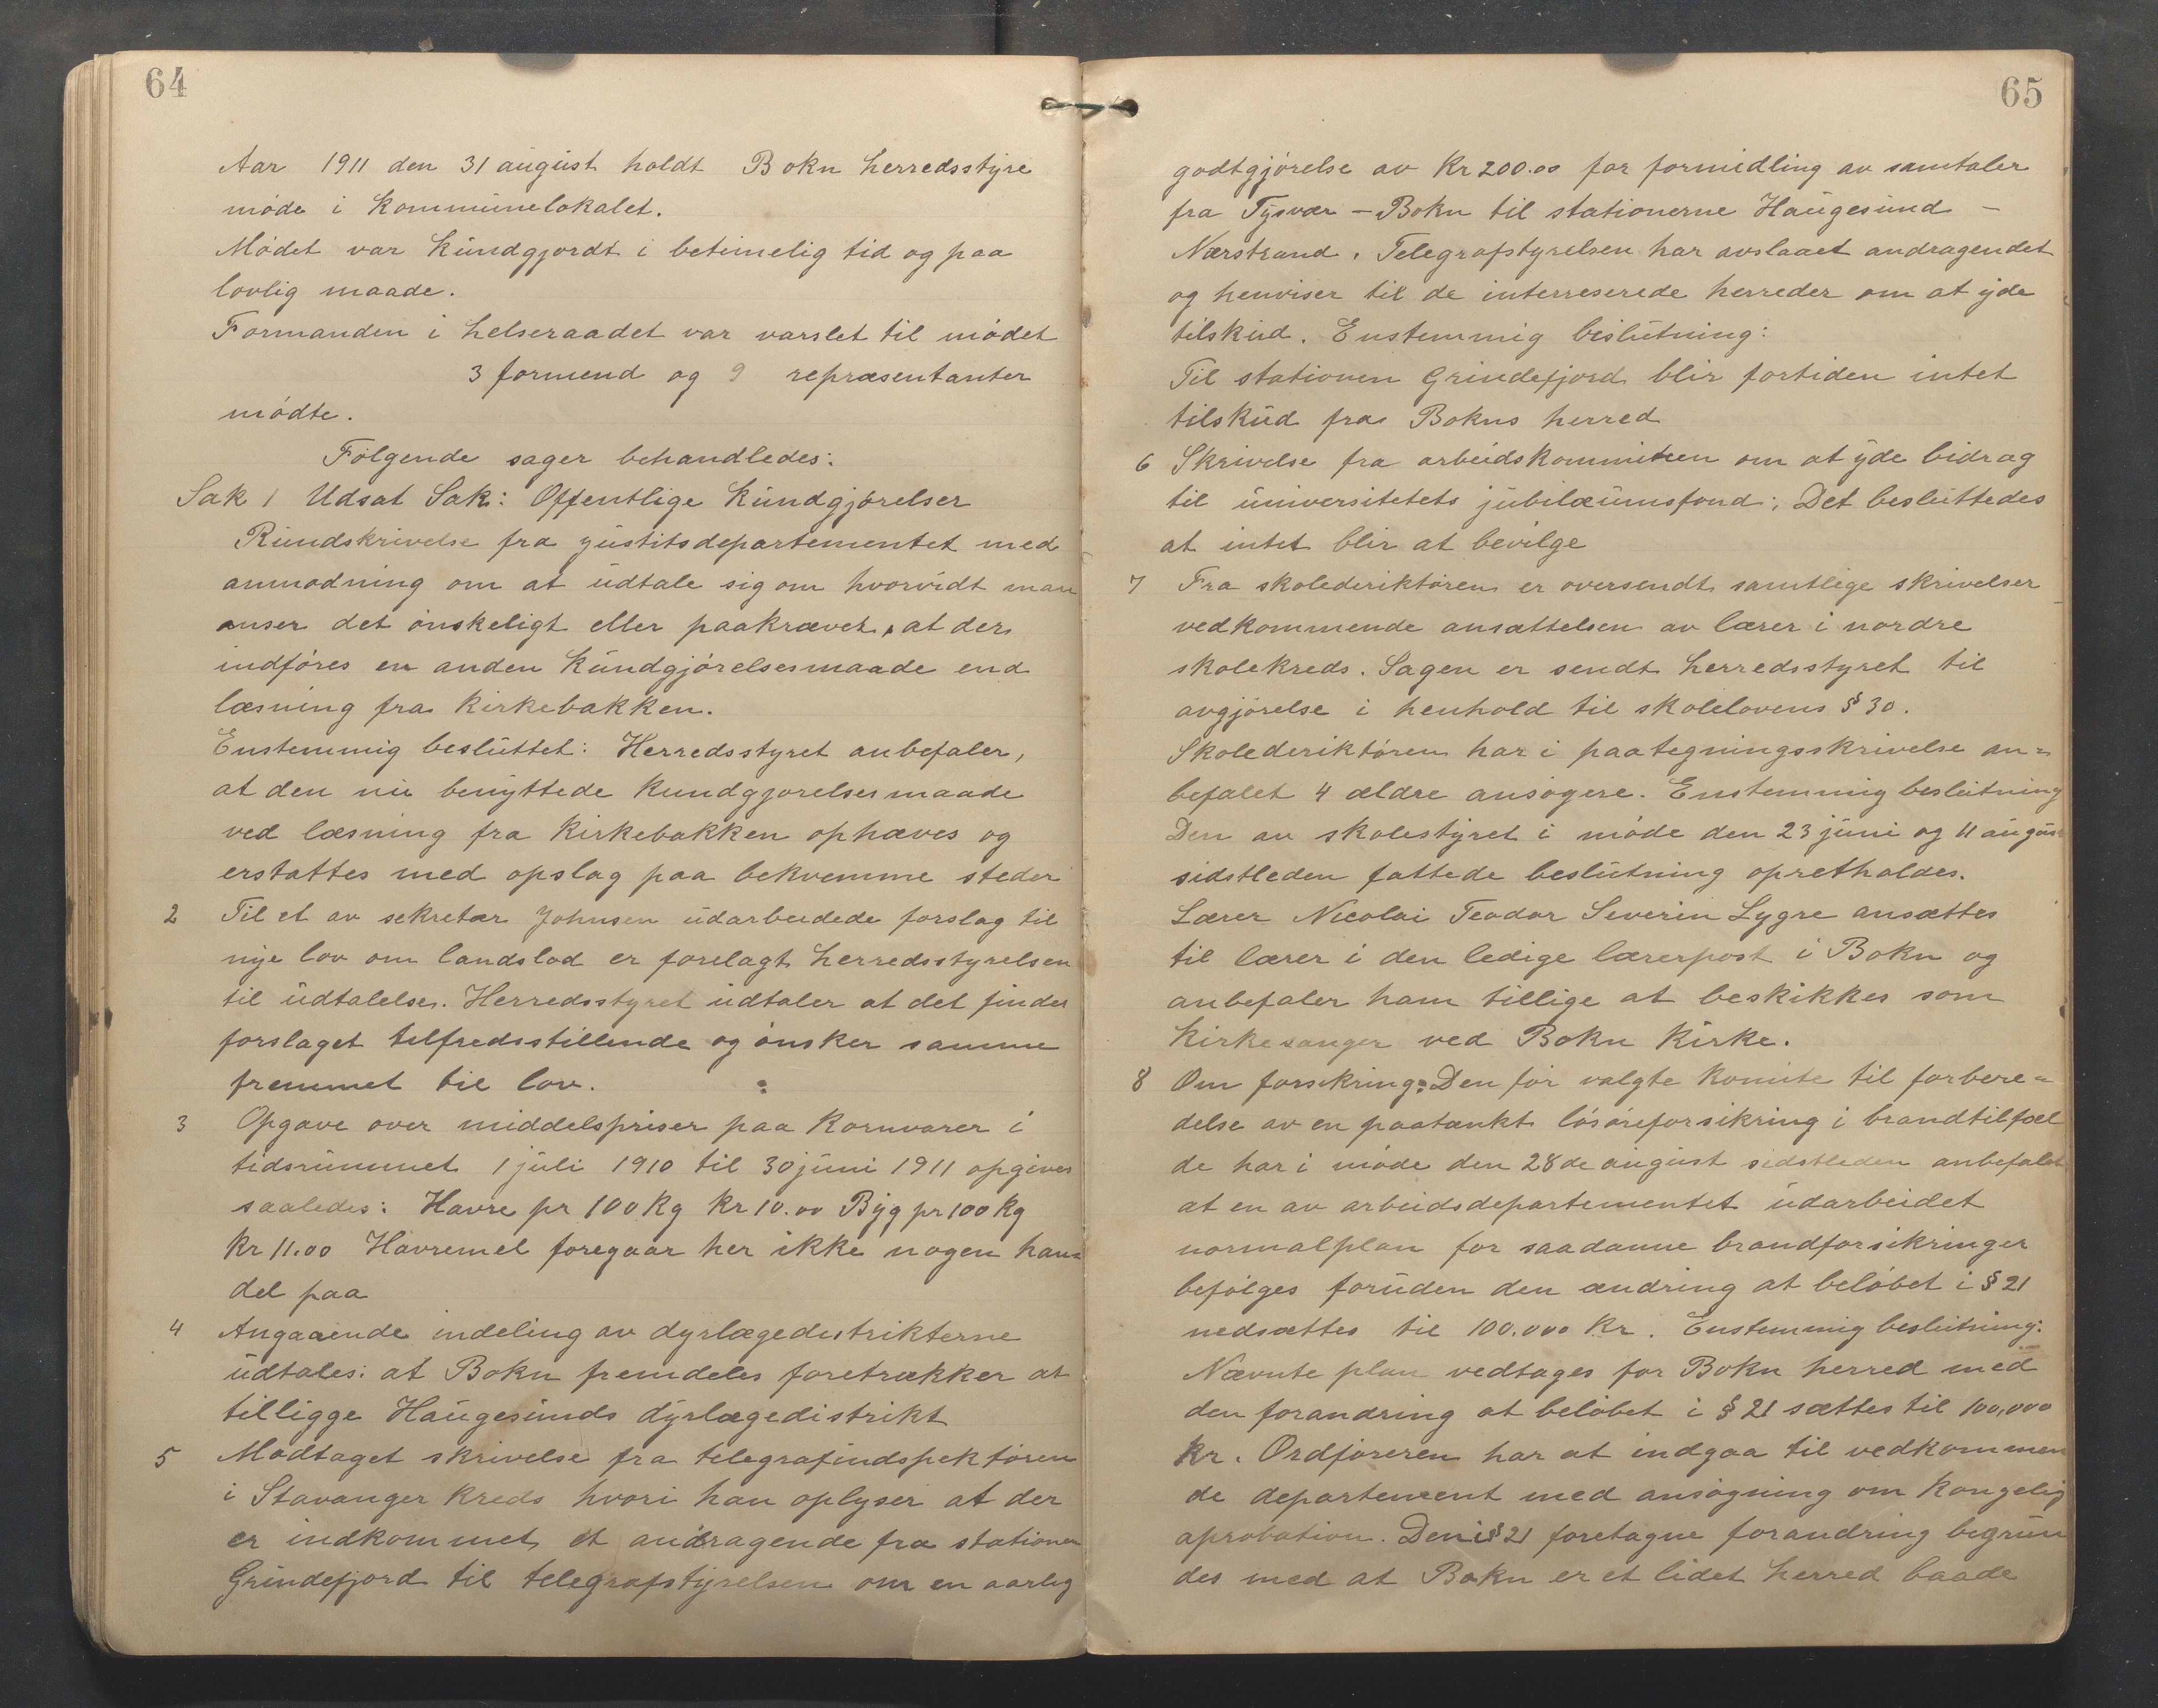 64
Aar 1911 den 31 august holdt Bokn herredsstyre
møde i kommunelokalet.
Mødet var kundgjordt i betimelig tid og paa
lovlig maade.
Formanden i helseraadet var varslet til mødet
3 formend og 9 repræsentanter
mødte.
Følgende sager behandledes:
Sak 1 Udsat Sak: Offentlige kundgjørelser
Rundskrivelse fra justitsdepartementet med
anmodning om at udtale sig om hvorvidt man
anser det ønskeligt eller paakrævet, at der
indføres en anden kundgjørelsesmaade end
læsning fra kirkebakken.
Enstemmig besluttet: Herredsstyret anbefaler,
at den nu benyttede kundgjorelsesmaade
ved læsning fra kirkebakken ophæves og
erstattes med opslag paa bekvemme steder
2 Til et av sekretær Johnsen udarbeidede forslag til
nye lov om landslod er forelagt herredsstyrelsen
til udtalelse. Herredsstyret udtaler at det finder
forslaget telfredsstillende og ønsker samme
fremmet til lov.
3 Opgave over middelspriser paa kornvarer i
tidsrummet 1 juli 1910 til 30 juni 1911 opgives
saaledes: Havre pr 100 kg kr 10.00 Byg pr 100 kg
kr 11.00 Havremel foregaar her ikke nogen han=
del paa
4 Angaaende indeling av dyrlægedistrikterne
udtales: at Bokn fremdeles foretrækker at
tilligge Haugesunds dyrlægedistrikt
5 Modtaget skrivelse fra telegrafindspektøren
i Stavanger kreds hvori han oplyser at der
er indkommet et andragende fra stationen
Grindefjord til telegrafstyrelsen om en aarlig
65
godtgjørelse av Kr 200.00 for formidling av samtaler
fra Tysvær – Bokn til stationerne Haugesund –
Nærstrand. Telegrafstyrelsen har avslaaet andragendet
og henviser til de interreserede herreder om at yde
tilskud. Enstemmig beslutning:
Til stationen Grindefjord blir fortiden intet
tilskud fra Bokns herred
6 Skrivelse fra arbeidskommiteen om at yde bidrag
til universitetets jubilæumsfond; Det besluttedes
at intet blir at bevilge
7 Fra skolederiktøren er oversendt samtlige skrivelser
vedkommende ansættelsen av lærer i nordre
skolekreds. Sagen er sendt herredsstyret til
avgjørelse i henhold til skolelovens § 30.
Skolederiktøren har i paategningsskrivelse an=
befalet 4 ældre ansøgere. Enstemmig beslutning
Den av skolestyret i møde den 23 juni og 11 august
sidstleden fattede beslutning opretholdes.
Lærer Nicolai Teodor Severin Lygre ansættes
til lærer i den ledige lærerpost i Bokn og
anbefaler ham tillige at beskikkes som
kirkesanger ved Bokn kirke.
8 Om forsikring: Den før valgte komite til forbere=
delse av en paatænkt løsøreforsikring i brandtilfæl
de har i møde den 28de august sidstleden anbefalet
at en av arbeidsdepartementet udarbeidet
normalplan for saadanne brandforsikringer
befølges foruden den ændring at beløbet i § 21
nedsættes til 100.000 kr. Enstemmig beslutning:
Nævnte plan vedtages for Bokn herred med
den forandring at beløbet i § 21 sættes til 100,000
kr. Ordføreren har at indgaa til vedkommen
de departement med ansøgning om kongelig
aprobation. Den i § 21 foretagne forandring begrun
des med at Bokn er et lidet herred baade